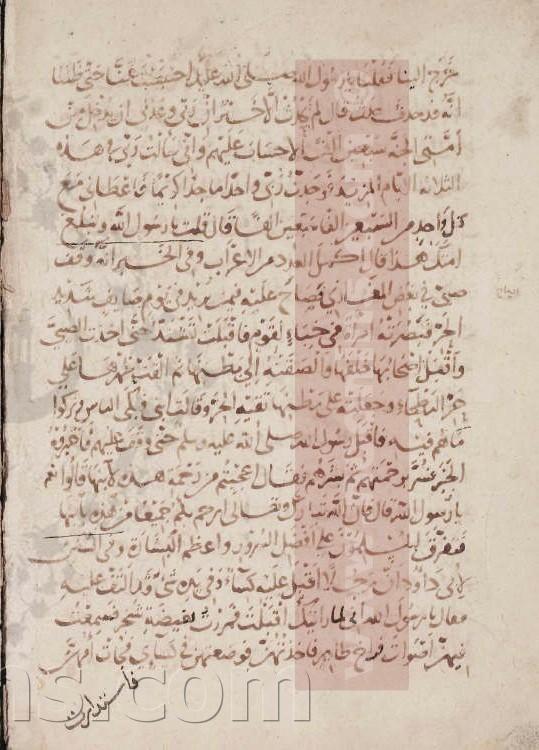 خرج الينا فقلنا يا رسول الله صلى الله عليك احتبست عنا حتى ظننا
انه قد حدث حدث قال لم يحدث الا خير ان ربي وعدني ان يدخل من
امتي الجنة سبعين الفا لا حساب عليهم واني سألت ربي في هذه
الثلاثة الايام المزيد فوجدت ربي واحدا ماجدا كريما فاعطاني مع
كل واحد من السبعين الفا سبعين الفا قال قلت يا رسول الله وتبلغ
امتك هذا قال اكمل العدد من الاعراب وفي الخبر انه وقف
صبي في بعض المغازي فصاح عليه فمن يريد في يوم صايف شديد
الحر فبصرت به امرأة في خباء القوم فاقبلت تشتد حتى اخذت الصبي
واقبل اصحابها خلفها والصقته الى بطنها ثم القت ظهرها على
حر البطحاء وجعلته على بطنها تقيه الحر وقالت ابني فبكى الناس وتركوا
ما هم فيه فاقبل رسول الله صلى الله عليه وسلم حتى وقف عليهم فاخبروه
الخبر فسر برحمتهم ثم بشرهم فقال اعجبتم من رحمة هذه لابنها قالوا نعم
يا رسول الله قال فان الله تبارك وتعالى ارحم بكم جميعا من هذه بابنها
فتفرق المسلمون على افضل السرور واعظم البشارة وفي السنن
لابي داود ان رجلا اقبل عليه كساء وفي يده شيء قد التف عليه
فقال يا رسول الله اني لما رايتك اقبلت فمررت بغيضة شجر فسمعت
فيها اصوات فراخ طاير فاخذتهن فوضعتهن في كسائي فجات امهن
فاستدارت
ns.com